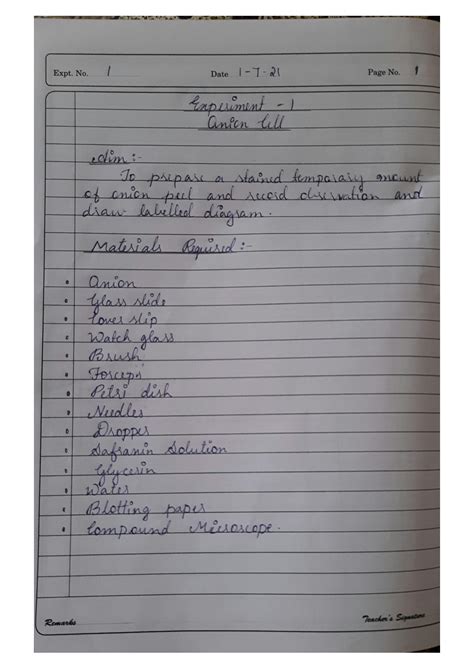 Expt. No. 1 Date 1-7-21 Page No. 1
Experiment - 1
Onion Cell
Aim :-
To prepare a stained temporary amount
of onion peel and record observation and
draw labelled diagram.
Materials Required :-
Onion
Glass slide
Cover slip
Watch glass
Brush
Forceps
Petri dish
Needles
Dropper
Safranin Solution
Glycerin
Water
Blotting paper
Compound Microscope.
Remarks Teacher's Signature